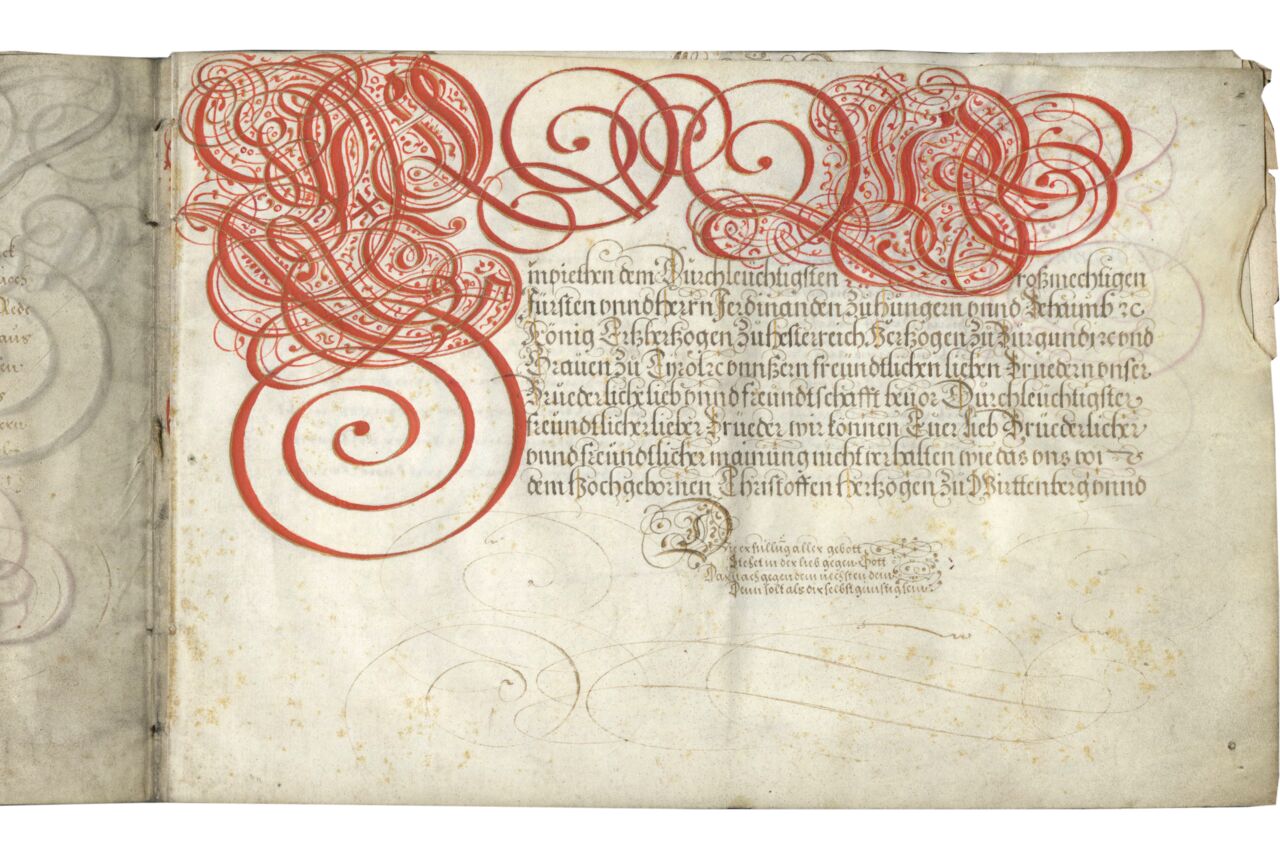 Wir
Empiethen dem Durchleuchtigsten Großmechtigen
fürsten vnnd herrn Ferdinanden Zu Hungern vnnd Behaimb ꝛc
König Ertzhertzogen Zu Österreich Hertzogen Zu Burgundi ꝛc vnd
Grauen Zu Tyrol ꝛc vnnßern freündtlichen lieben Brüedern vnser
Brüederlich lieb vnnd freündtschafft beuor Durchleuchtigster
freündtlicher lieber Brüeder wir können Euer lieb Brüederlicher
vnnd freündtlicher mainung nicht verhalten wie das vns vor
dem Hochgebornen Christoffen Hertzogen Zu Wirttenberg vnnd
Die erfüllūg aller gebott
Stehet in der lieb gegen Gott
Darnach gegen dem nechsten dein
Dem solt als dir selbst günstig sein